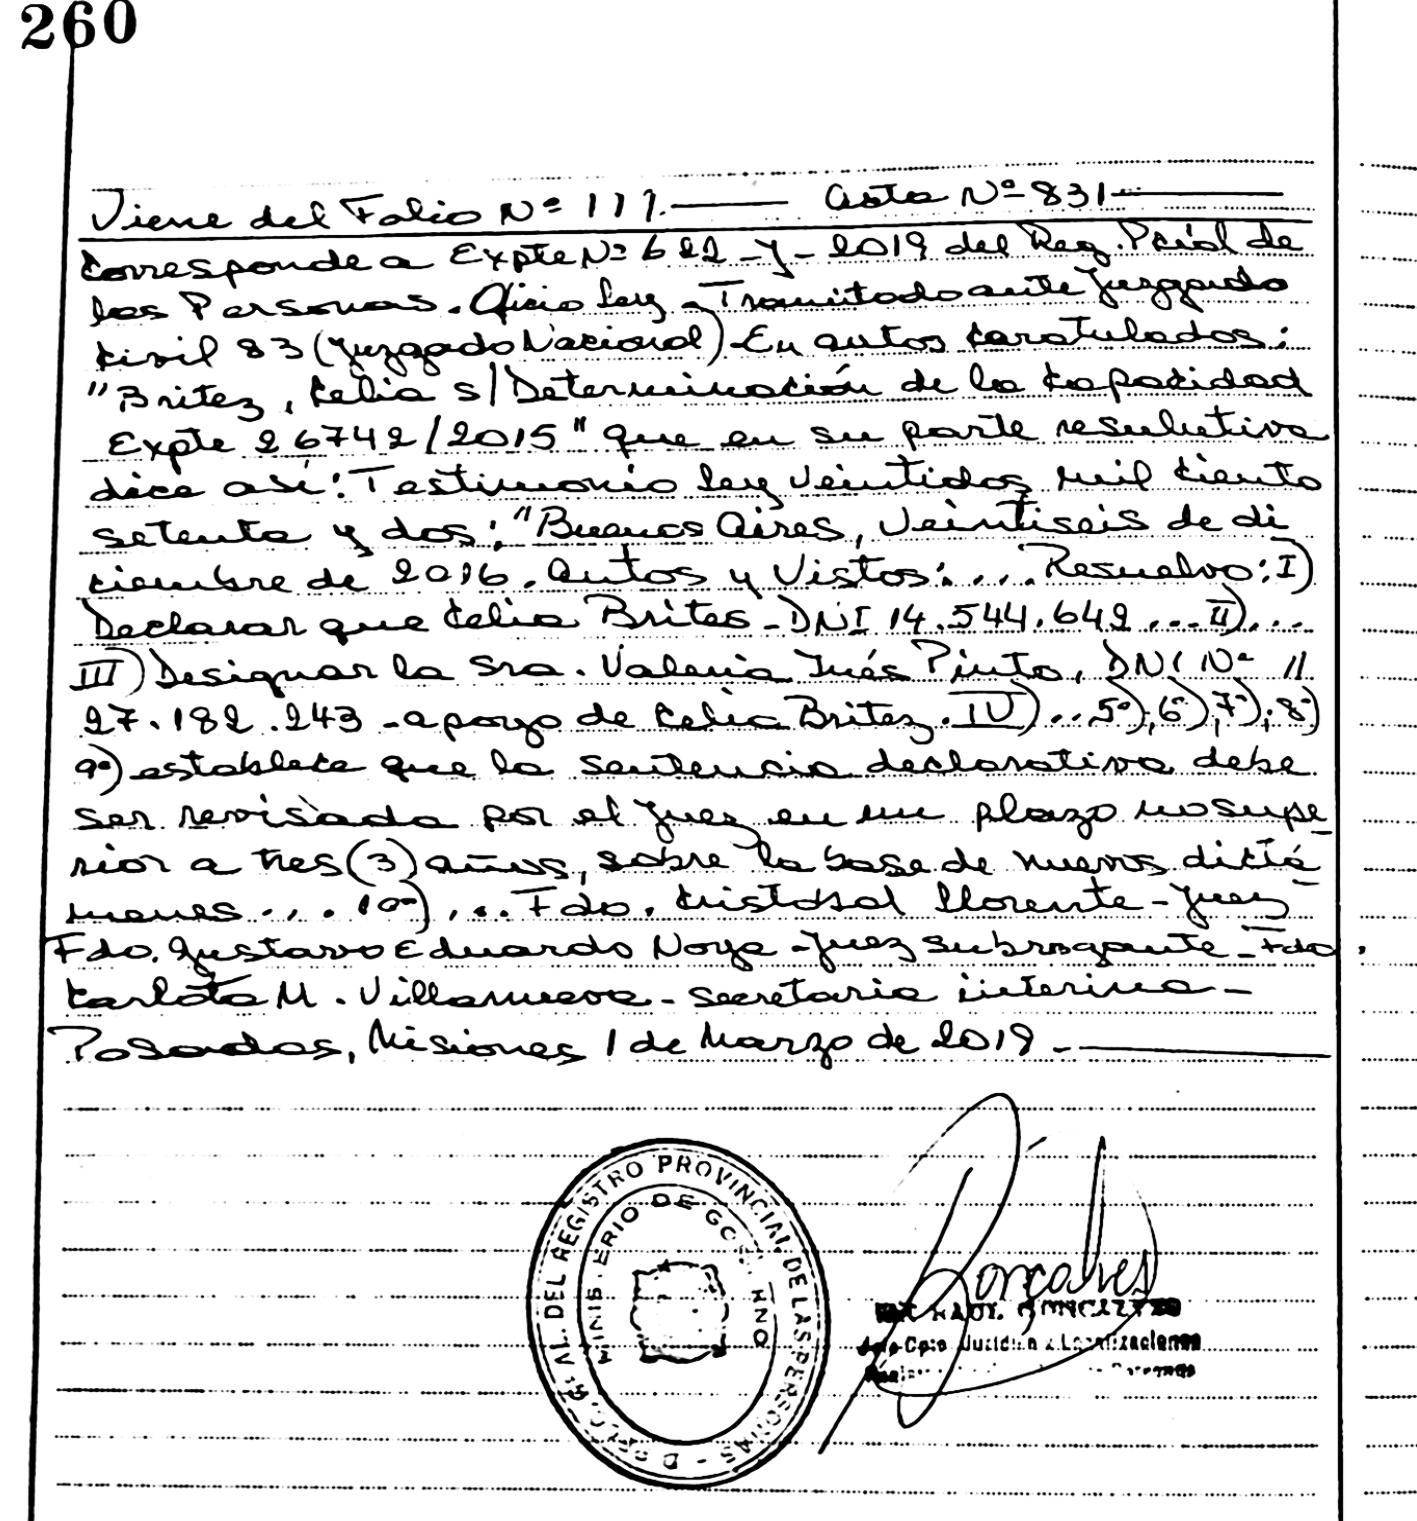 260
Viene del Folio Nº 111. Acta Nº 831
Corresponde a Expte Nº 622-Y-2019 del Reg. Pcial de
las Personas. Oficio Ley Tramitado ante Juzgado
Civil 83 (Juzgado Nacional) En autos caratulados:
"Britez, Celia s/ Determinación de la Capacidad
Expte 26742/2015" que en su parte resulutiva
dice así: Testimonio Ley veintidos mil ciento
setenta y dos: "Buenos Aires, Veintiseis de di
ciembre de 2016. Autos y Vistos: ... Resuelvo: I)
Declarar que Celia Brites - DNI 14.544.642 ... II) ...
III) Designar la Sra. Valeria Inés Pinto, DNI Nº //
27.182.243 - apoyo de Celia Britez. IV) .. 5º), 6º), 7º), 8º)
9º) establece que la sentencia declarativa debe
ser revisada por el Juez en un plazo no supe_
rior a tres (3) años, sobre la base de nuevos dictá_
menes ... 10º) ... Fdo. Cristobal Llorente - Juez
Fdo. Gustavo Eduardo Noya - Juez subrogante - Fdo.
Carlota M. Villanueva - secretaria interina -
Posadas, Misiones 1 de Marzo de 2019 -
DEL REGISTRO PROVINCIAL DE LAS PERSONAS
MINISTERIO DE GOBIERNO
Gonçalves